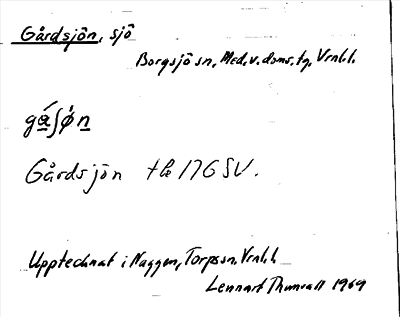 Gårdsjön, sjö
Borgsjö sn, Med. v. doms. tg, Vrnl. l.
gá̱ʃø̀n̲
Gårdsjön tlp 17G SV.
Upptecknat i Naggen, Torps sn. Vrnl. l
Lennart Thunvall 1969